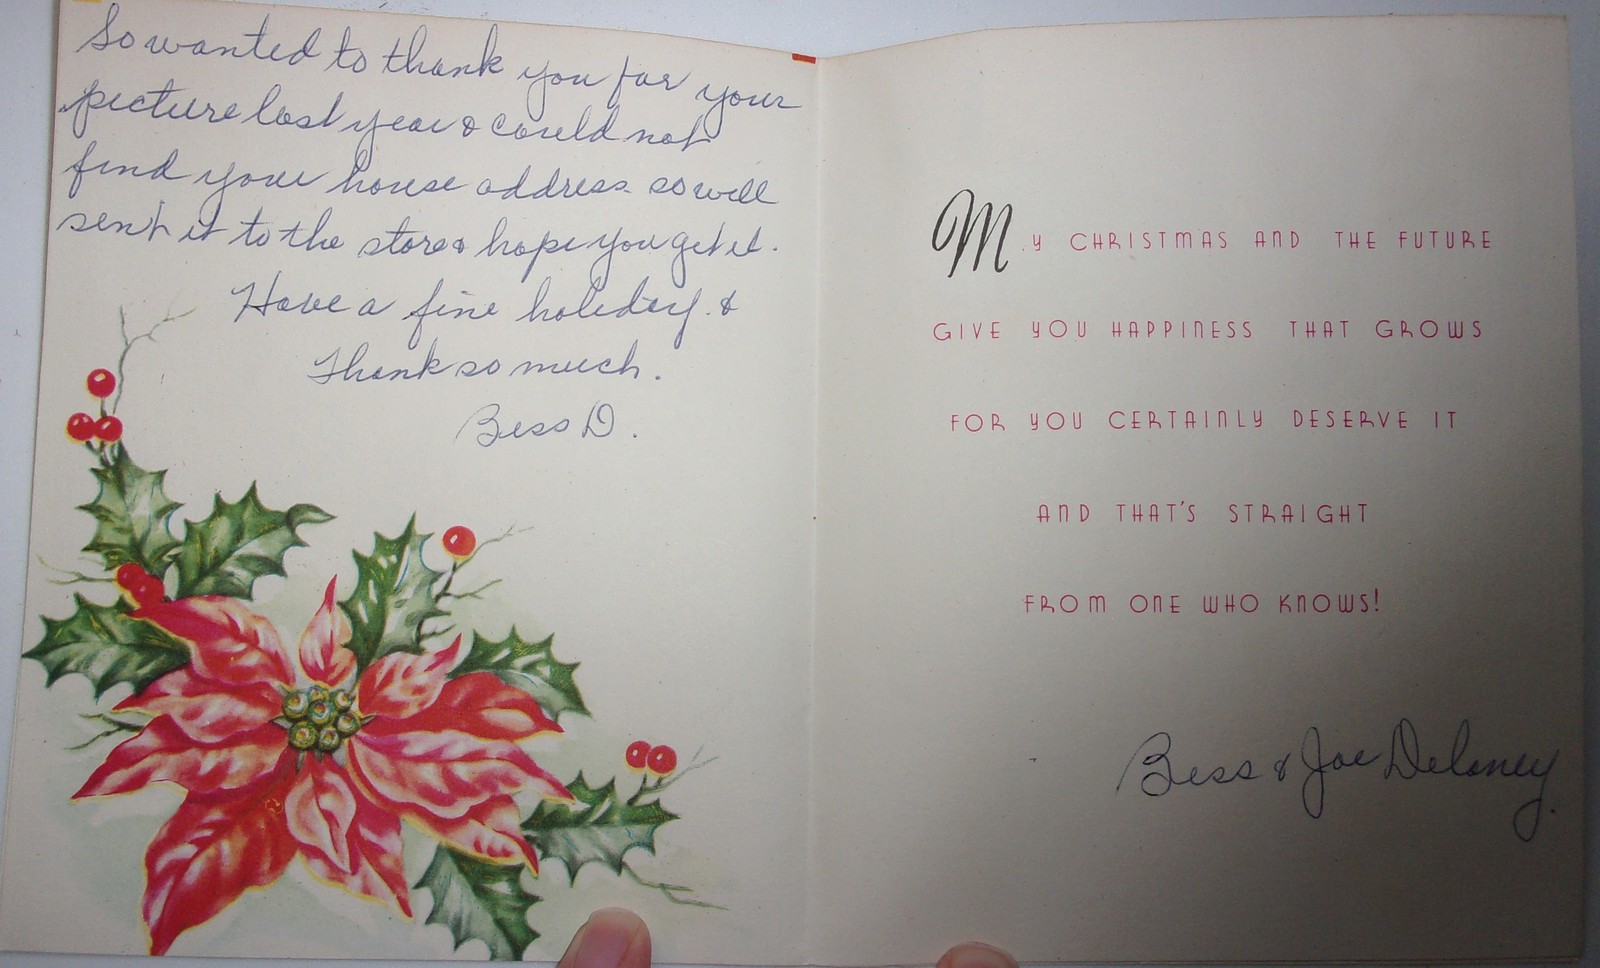 So wanted to thank you for your
picture last year & could not
find your house address so will
sent it to the store & hope you get it.
Have a fine holiday. &
Thank so much.
Bess D.
MY CHRISTMAS AND THE FUTURE
GIVE YOU HAPPINESS THAT GROWS
FOR YOU CERTAINLY DESERVE IT
AND THAT'S STRAIGHT
FROM ONE WHO KNOWS!
Bess & Joe Delaney.